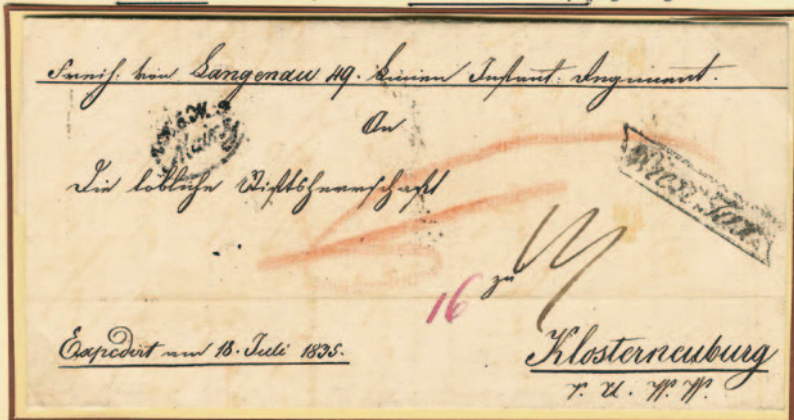 Freih. von Langenau 49. Linien Infant. Regiment.
An
Die löbliche Stiftsherrschaft
Mainz
16
zu
Expedirt am 18. Juli 1835.
Klosterneuburg
V. U. W. W.